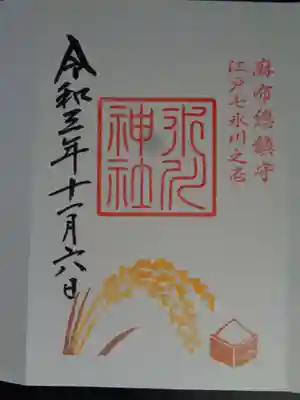 麻布総鎮守
江戸七氷川之壱
氷川
神社
令和三年十一月六日